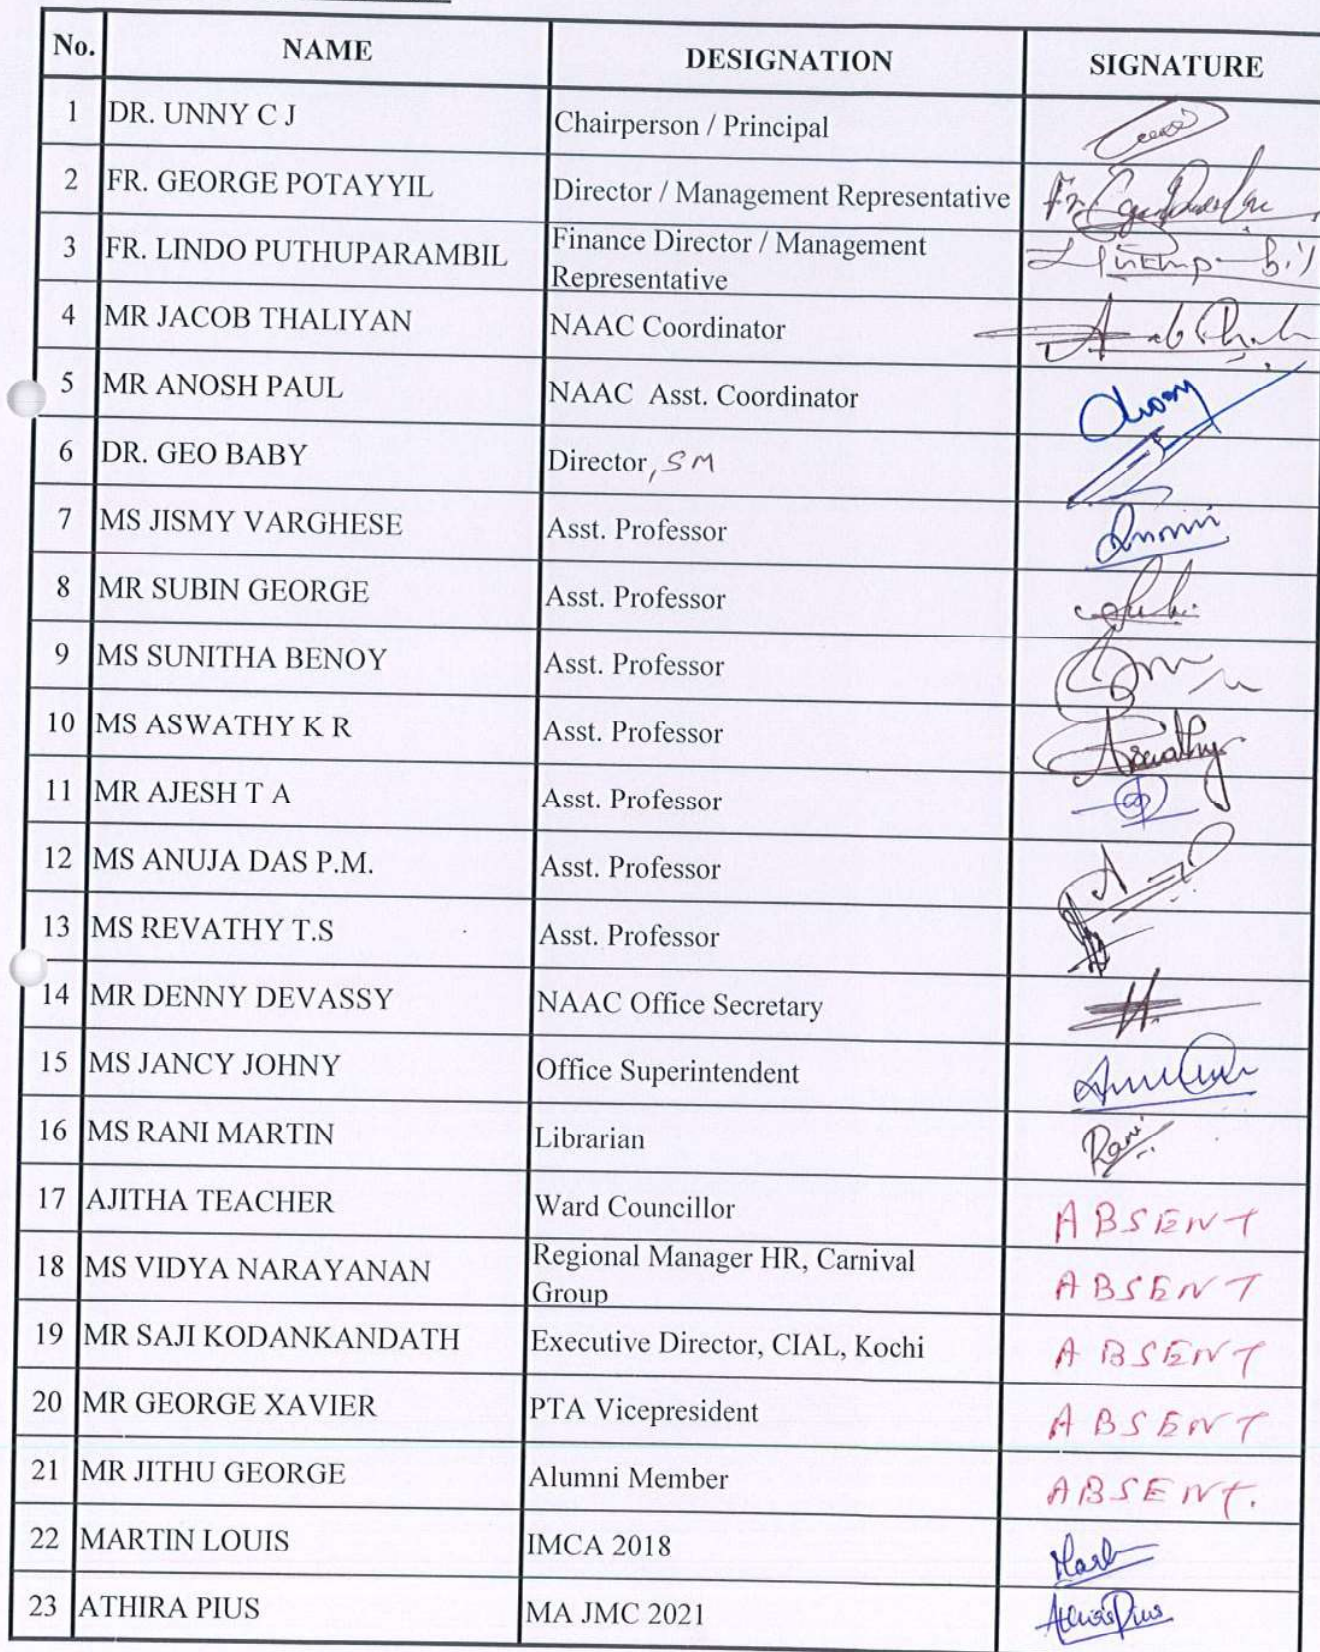 No. NAME DESIGNATION SIGNATURE
1 DR. UNNY C J Chairperson / Principal
2 FR. GEORGE POTAYYIL Director / Management Representative Fr
3 FR. LINDO PUTHUPARAMBIL Finance Director / Management
Representative
4 MR JACOB THALIYAN NAAC Coordinator
5 MR ANOSH PAUL NAAC Asst. Coordinator
6 DR. GEO BABY Director, SM
7 MS JISMY VARGHESE Asst. Professor
8 MR SUBIN GEORGE Asst. Professor
9 MS SUNITHA BENOY Asst. Professor
10 MS ASWATHY K R Asst. Professor Aswathy
11 MR AJESH T A Asst. Professor
12 MS ANUJA DAS P.M. Asst. Professor
13 MS REVATHY T.S Asst. Professor
14 MR DENNY DEVASSY NAAC Office Secretary
15 MS JANCY JOHNY Office Superintendent
16 MS RANI MARTIN Librarian Rani
17 AJITHA TEACHER Ward Councillor ABSENT
18 MS VIDYA NARAYANAN Regional Manager HR, Carnival
Group ABSENT
19 MR SAJI KODANKANDATH Executive Director, CIAL, Kochi ABSENT
20 MR GEORGE XAVIER PTA Vicepresident ABSENT
21 MR JITHU GEORGE Alumni Member ABSENT.
22 MARTIN LOUIS IMCA 2018
23 ATHIRA PIUS MA JMC 2021 Athira Pius